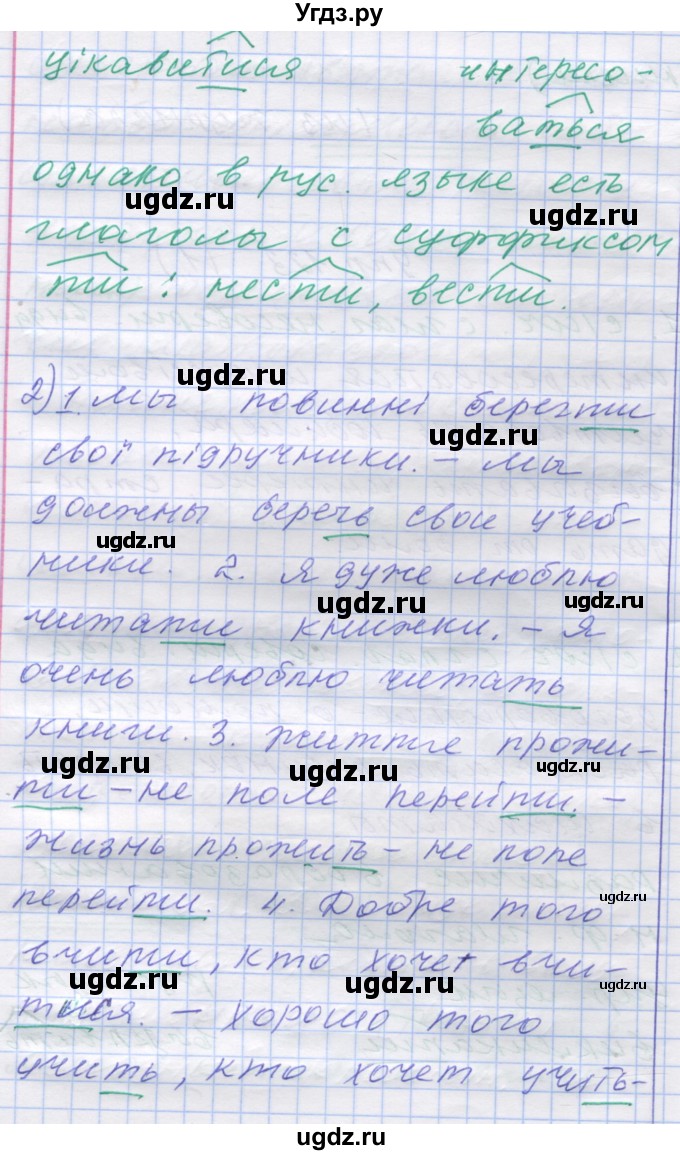 Угдз.ру
цікавитися интересо-
ваться
однако в рус. языке есть
ugdz.ru ugdz.ru
глаголы с суффиксом
ти: нести, вести.
ugdz.ru
2) 1. Мы повинні берегти
ugdz.ru
свої підручники. – Мы
должны беречь свои учеб-
ugdz.ru
ники. 2. Я дуже люблю
ugdz.ru ugdz.ru
читати книжки. – Я
очень люблю читать
книги. 3. Життє прожи-
ugdz.ru ugdz.ru ugdz.ru
ти – не поле перейти. –
жизнь прожить – не поле
ugdz.ru
перейти. 4. Добре того
вчити, кто хочет вчи-
ugdz.ru ugdz.ru ugdz.ru
тися. – хорошо того
учить, кто хочет учить-
ugdz.ru